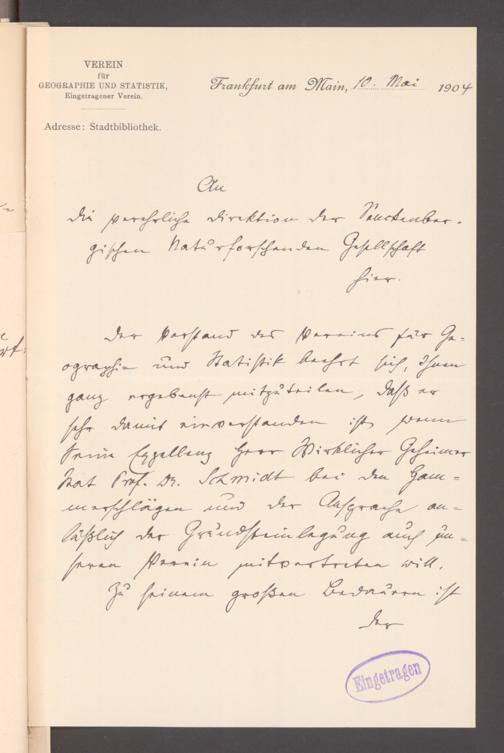 VEREIN
für
GEOGRAPHIE UND STATISTIK,
Eingetragener Verein.
Adresse: Stadtbibliothek.
Frankfurt am Main, 10. Mai 1904
An
die verehrliche Direktion der Senckenber-
gischen Naturforschenden Gesellschaft
hier.
Der Vorstand des Vereins für Ge-
ographie und Statistik beehrt sich, Ihnen
ganz ergebenst mitzuteilen, daß er
sehr damit einverstanden ist, wenn
Seine Exzellenz Herr Wirklicher Geheimer
Rat Prof. Dr. Schmidt bei den Ham-
merschlägen und der Ansprache an-
läßlich der Grundsteinlegung auch un-
seren Verein mitvertreten will.
Zu seinem großen Bedauern ist
der
Eingetragen